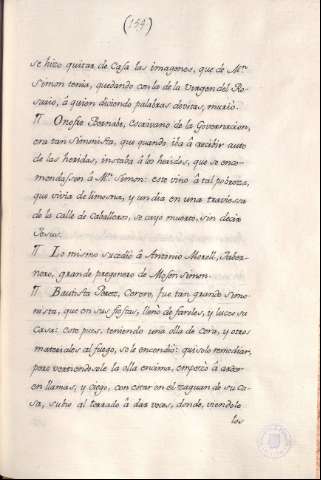 (159)
se hizo quitar de Casa las imagenes, que de M.n
Simon tenia, quedando con la de la Virgen del Ro-
sario, á quien diciendo palabras devotas, murió.
¶ Onofre Bernabé, Escrivano de la Governacion,
era tan Simonista, que quando iba á recibir auto
de las heridas, instaba á los heridos, que se enco-
mendassen á M.n Simon: este vino á tal pobreza,
que vivia de limosna, y un dia en una traviessa
de la calle de Cavalleros, se cayó muerto, sin decir
Jesus.
¶ Lo mismo sucedió á Antonio Morell, Taber-
nero, grande pregonero de Mosen Simon.
¶ Bautista Perez, Cerero, fue tan grande Simo-
nista, que en sus fiestas, llenó de faroles, y luces su
Casa: este pues, teniendo una olla de Cera, y otros
materiales al fuego, se le encendió: quisolo remediar,
pero vertiendosele la olla encima, empezó á arder
en llamas, y ciego, con estar en el zaguan de su ca-
sa, subio al terrado á dar voces, donde, viendole
los